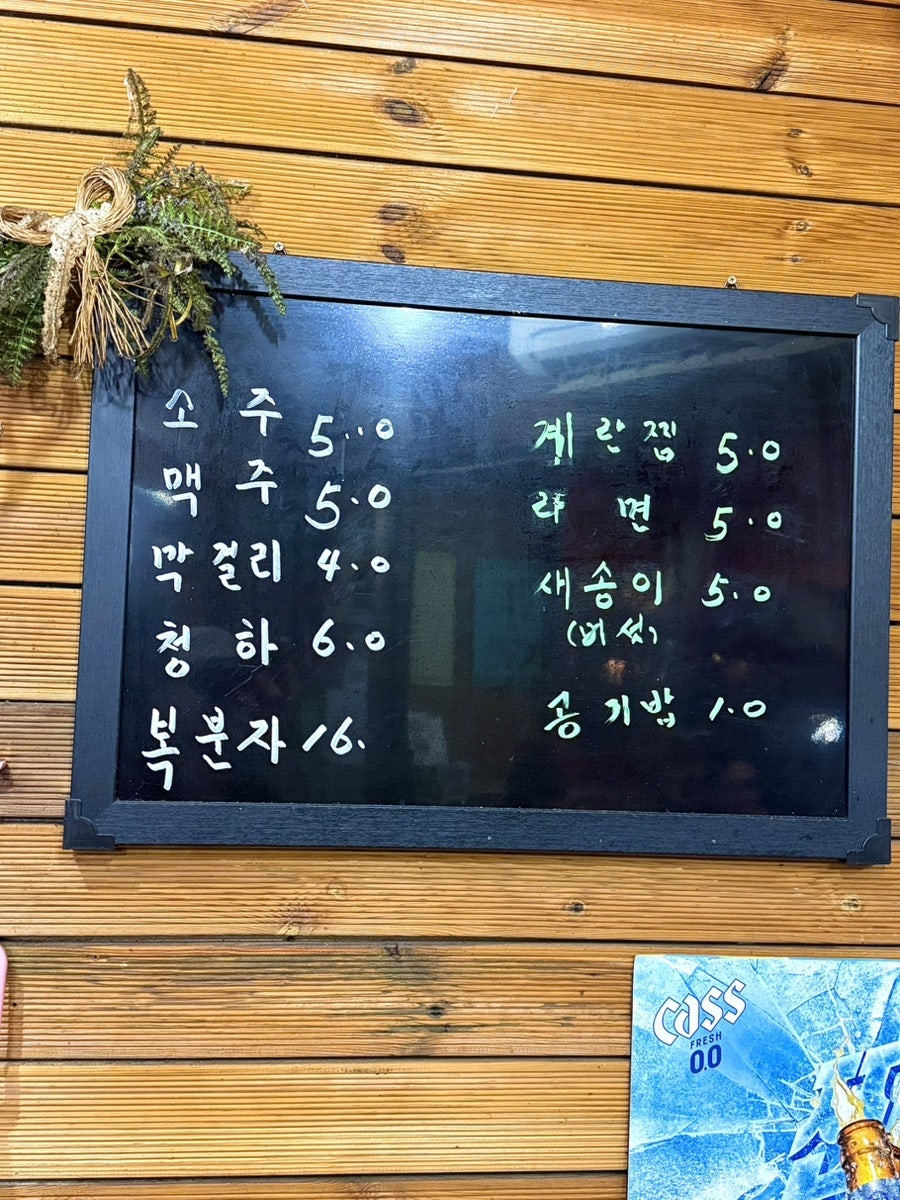 소주 5..0
맥주 5.0
막걸리 4.0
청하 6.0
복분자 16.
계란찜 5.0
라면 5.0
새송이 5.0
(버섯)
공기밥 1.0
Cass
FRESH
0.0